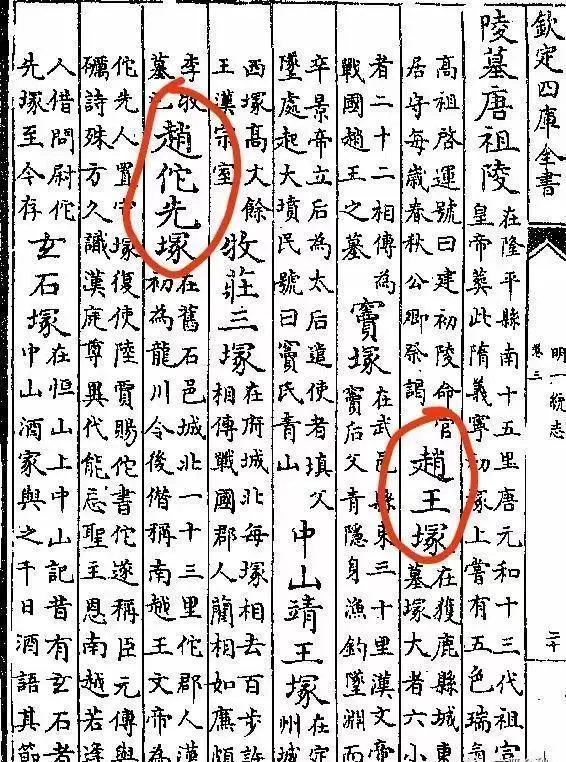 欽定四庫全書
明一統志
卷三
二十
陵墓唐祖陵
在隆平縣南十五里唐元和十三代祖宣
皇帝葬此隋義寧初塚上嘗有五色瑞氣
高祖啓運號曰建初陵命官
居守每歲春秋公卿祭謁
趙王塚
在獲鹿縣城東
墓塚大者六小
者二十二相傳為
戰國趙王之墓
竇塚
在武邑縣東三十里漢文帝
竇后父青隱身漁釣墜淵而
卒景帝立后為太后遣使者填父
墜處起大墳民號曰竇氏青山
中山靖王塚
在定
州城
西塚高丈餘
王漢宗室
牧莊三塚
在府城北每塚相去百步許
相傳戰國郡人藺相如廉頗
李牧
墓
趙佗先塚
在舊石邑城北一十三里佗郡人漢
初為龍川令後僭稱南越王文帝為
佗先人置守塚復使陸賈賜佗書佗遂稱臣元傅與
礪詩殊方久識漢庭尊異代能忘聖主恩南越若逢
人借問尉佗
先塚至今存
玄石塚
在恒山上中山記昔有玄石者
中山酒家與之千日酒語其節